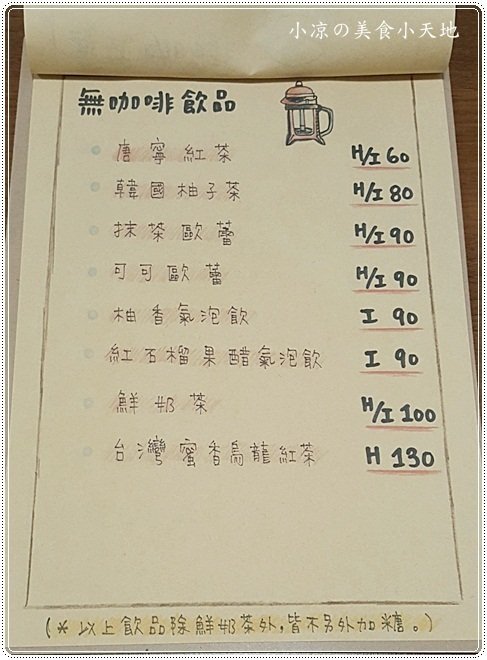 小凉の美食小天地
無咖啡飲品
唐寧紅茶 H/I 60
韓國柚子茶 H/I 80
抹茶歐蕾 H/I 90
可可歐蕾 H/I 90
柚香氣泡飲 I 90
紅石榴果醋氣泡飲 I 90
鮮奶茶 H/I 100
台灣蜜香烏龍紅茶 H 130
(＊以上飲品除鮮奶茶外,皆不另外加糖。)